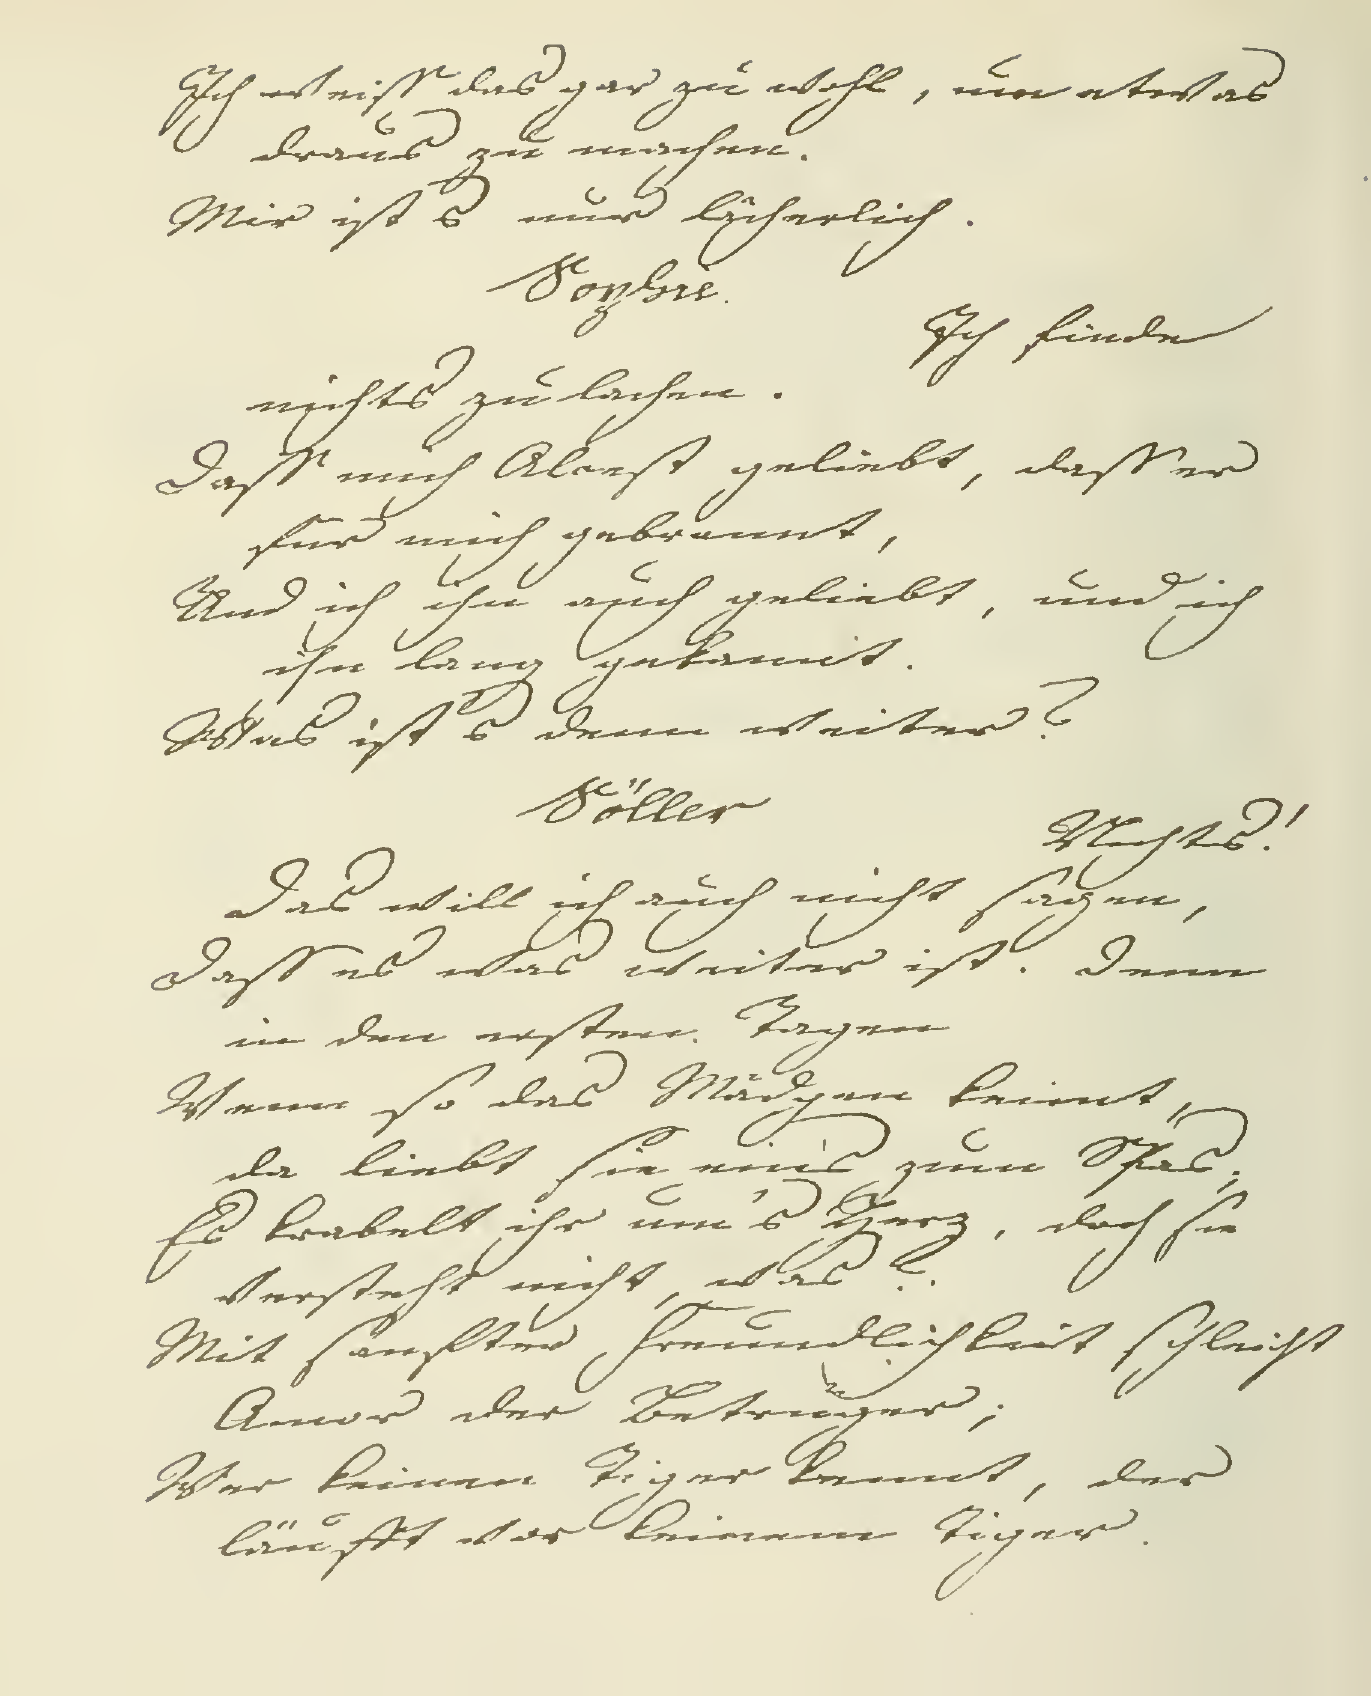 Ich weiss das gar zu wohl, um etwas
draus zu machen.
Mir ist's nur lächerlich.
Sophie.
Ich finde
nichts zu lachen.
Dass mich Alcest geliebt, dass er
für mich gebrannt,
Und ich ihn auch geliebt, und ich
ihn lang gekannt.
Was ist's denn weiter?
Söller
Nichts!
Das will ich auch nicht sagen,
Dass es was weiter ist. Denn
in den ersten Tagen
Wenn so das Mädgen keimt,
da liebt sie eins zum Spas;
Es krabelt ihr um's Herz, doch sie
versteht nicht, was?
Mit sanfter Freundlichkeit schleicht
Amor der Betrüger;
Wer keinen Tiger kennt, der
läufft vor keinem Tiger.